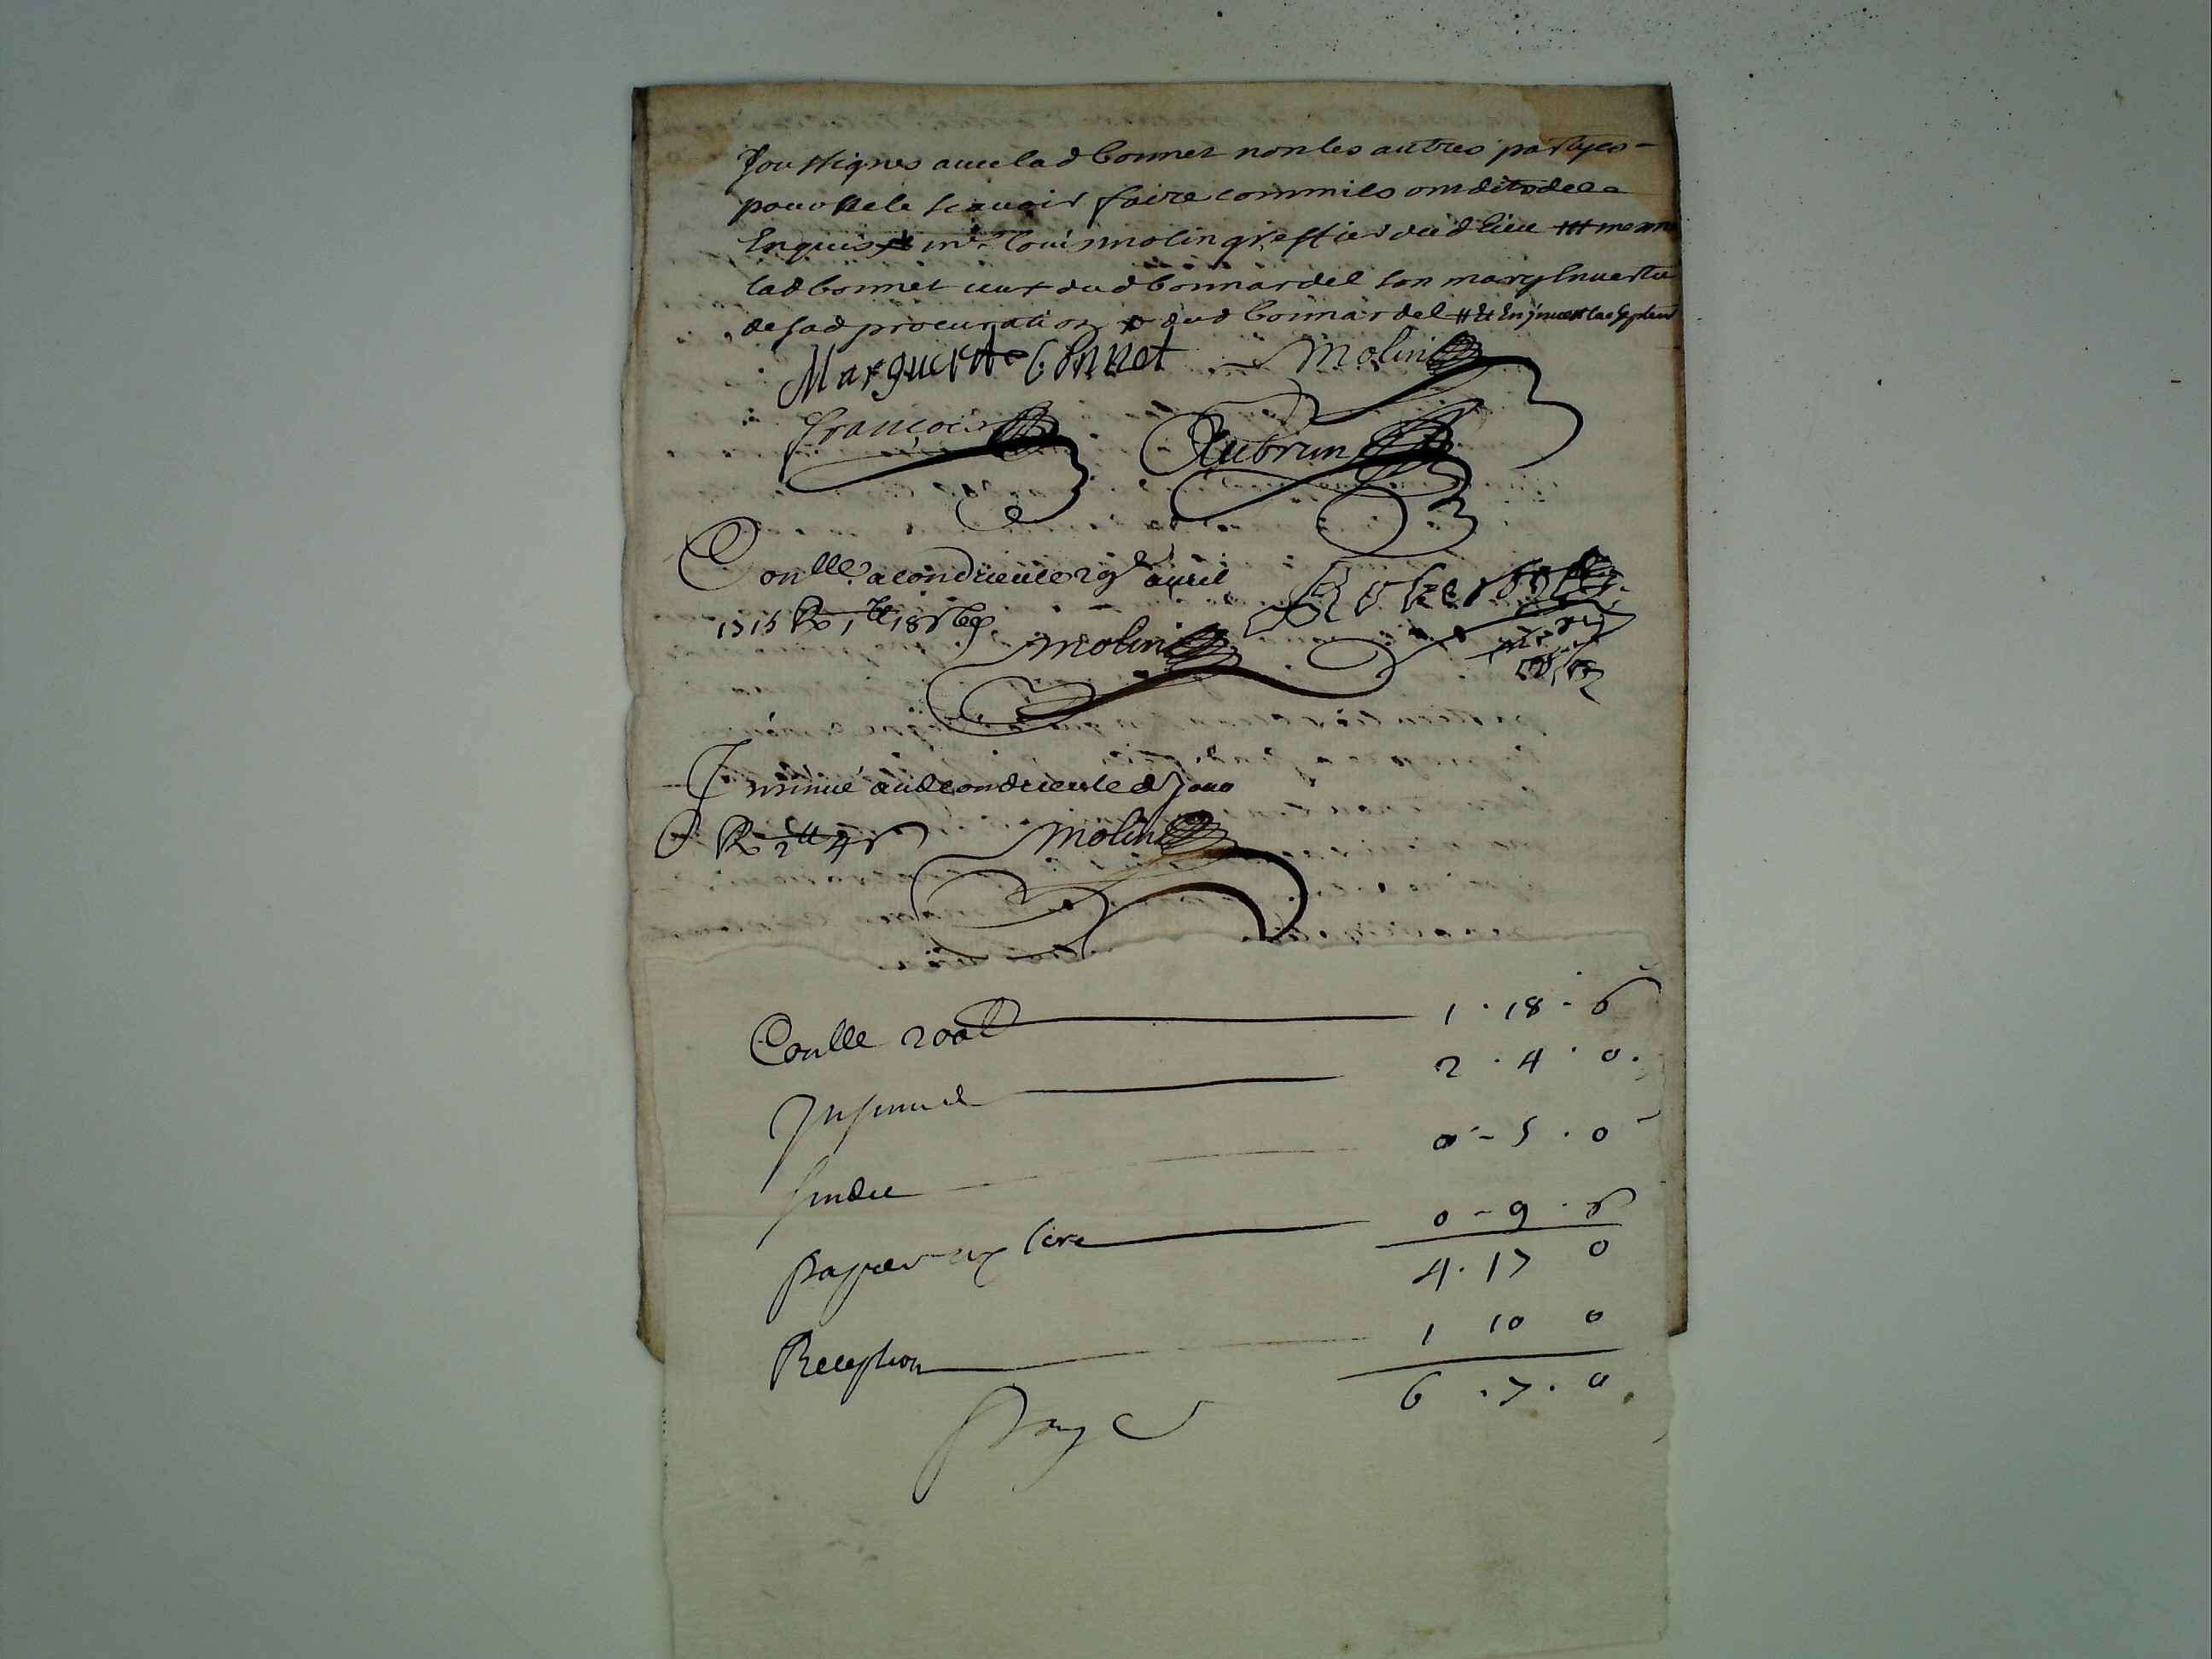 soussignes avec lad bonnet non les autres partyes -
pour ne le scavoir faire comme ils ont dit de ce
Enquis me Louis molin greffier dud lieu
lad bonnet dud bonnardel son mary En vertu
de sad procuration dud bonnardel
Marguerite bonnet molin
françois Aubrun
Conlle a condrieu le 29e avril
1715 R 1 tt 18 s 6 d
molin
Insinué aud condrieu led Jour
R 2 tt 4 s molin
Conlle 200 tt 1 . 18 . 6
Insinué 2 . 4 . 0 .
0 - 5 . 0
papier 0 - 9 . 6
4 . 17 0
Reception 1 10 0
6 . 7 . 0
payé